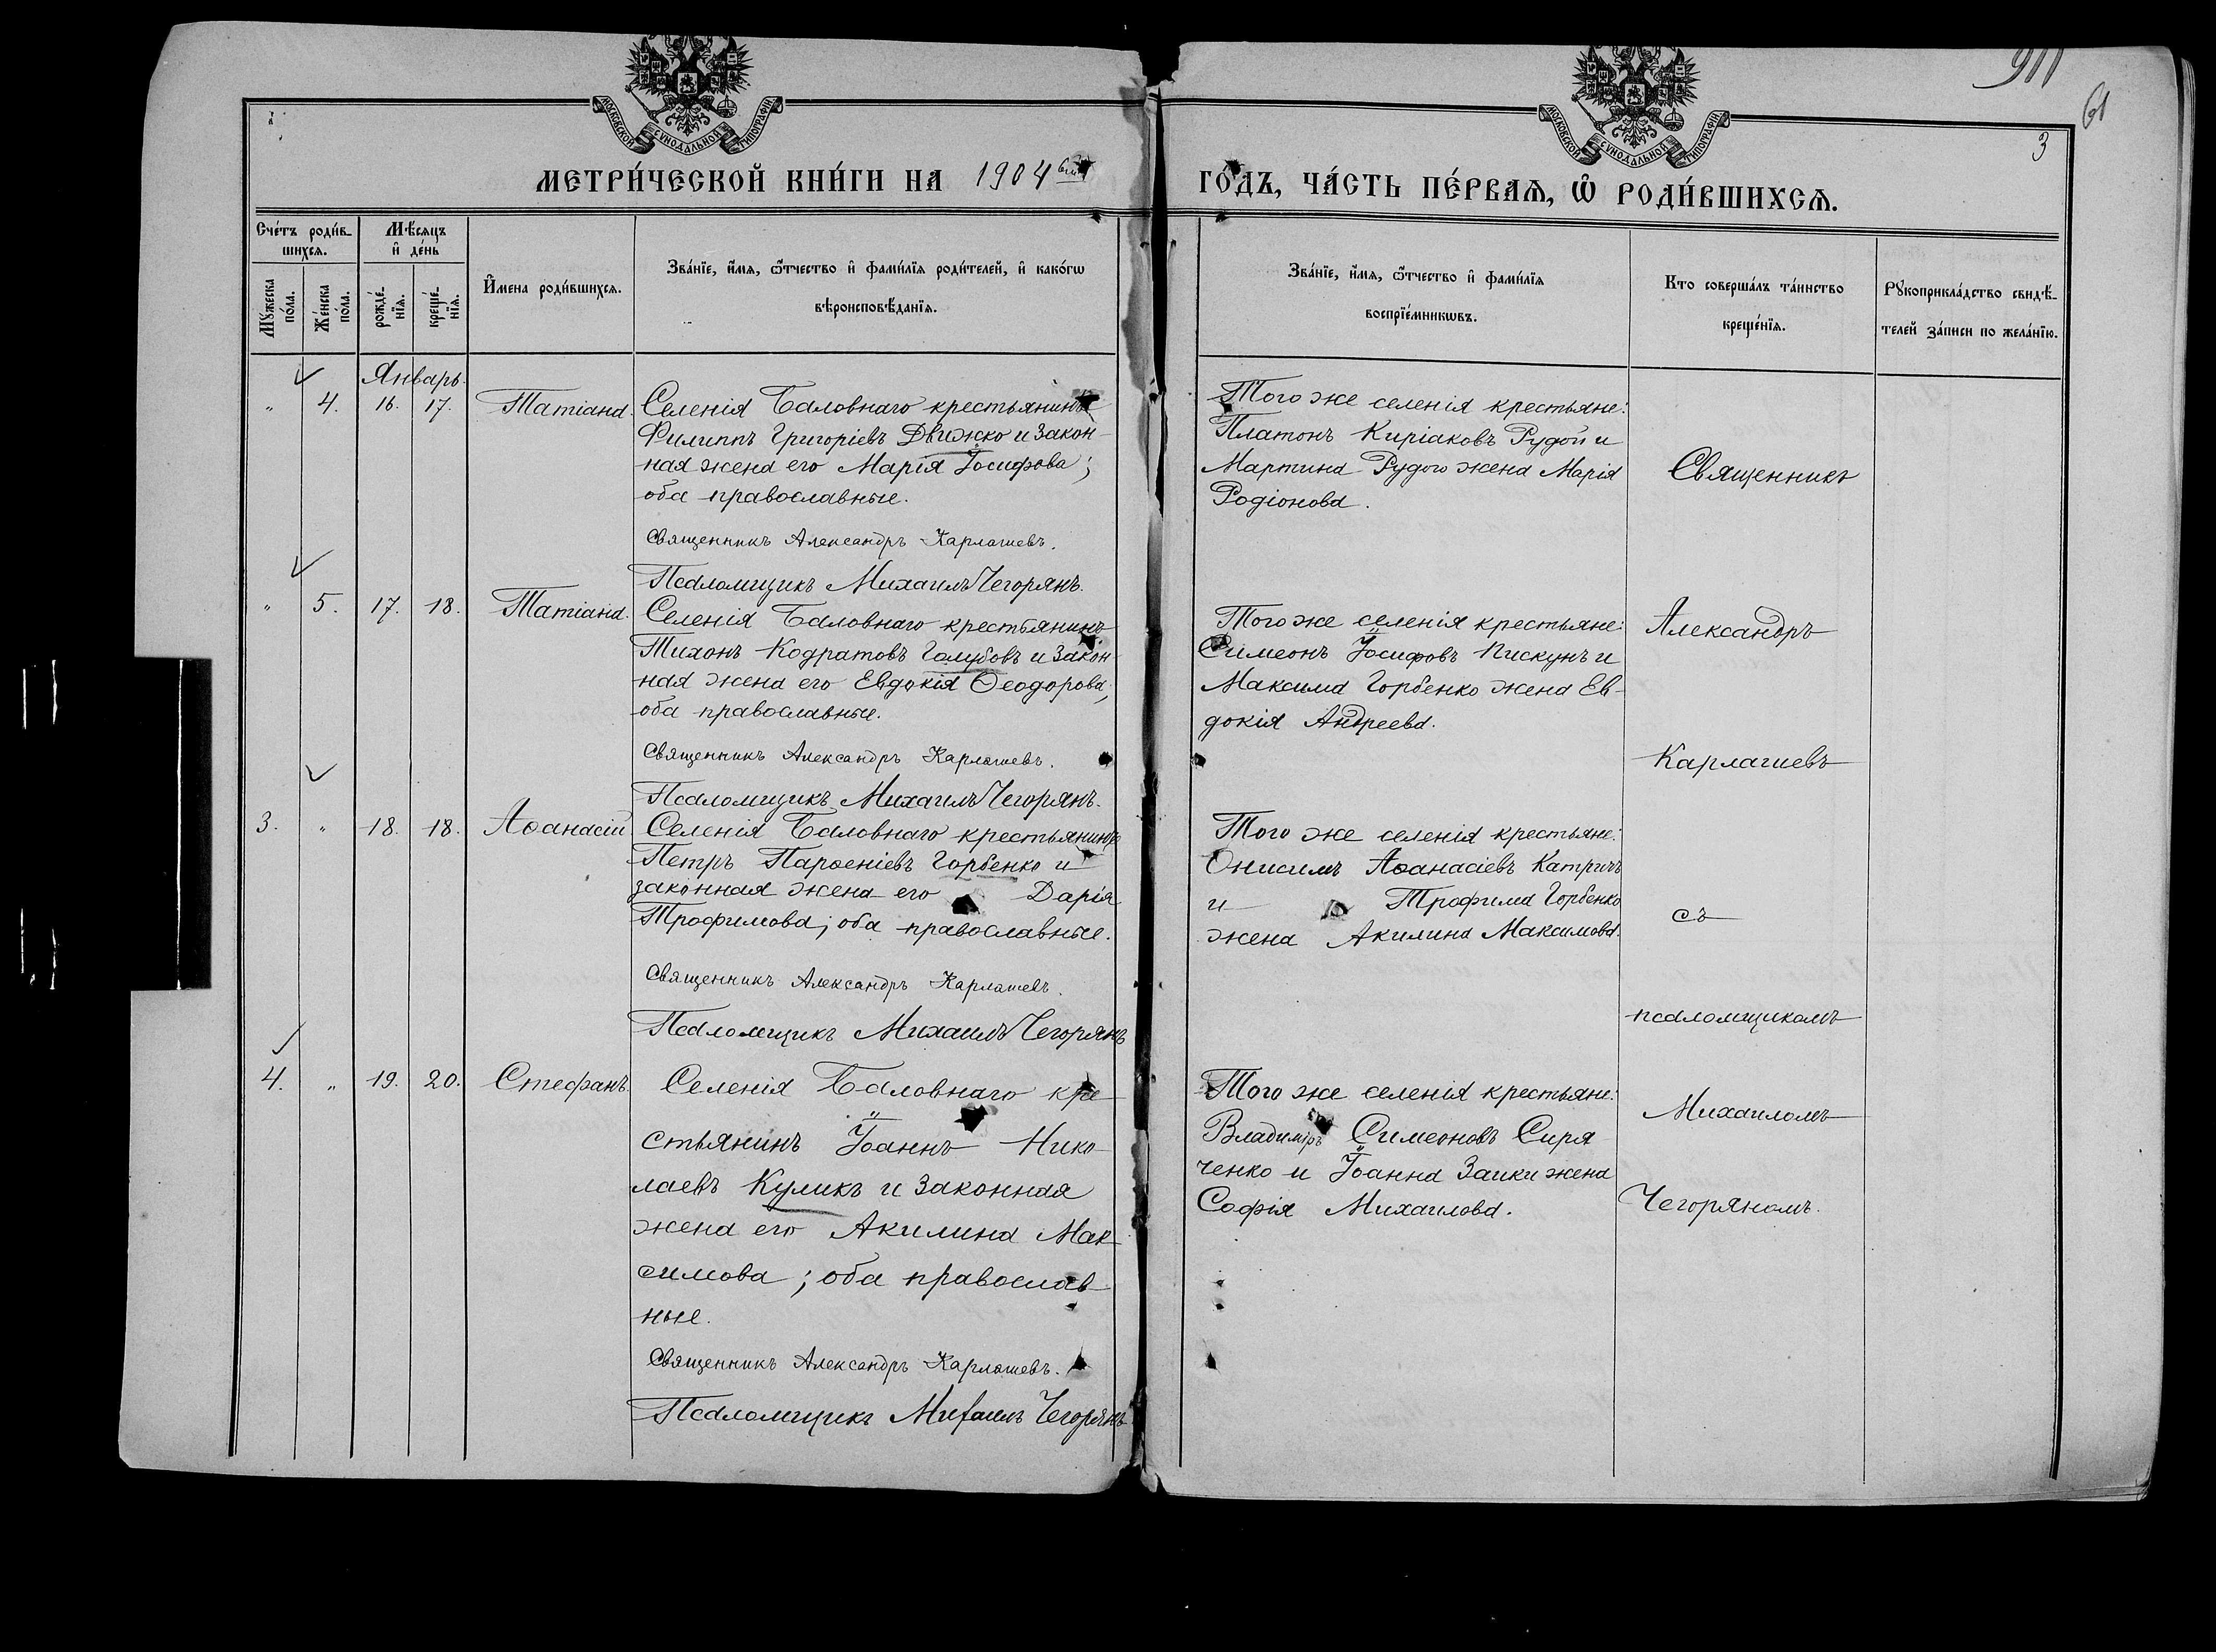 911
61
3
МОСКОВСКОЙ СѴНОДАЛЬНОЙ ТИПОГРАФІИ
МОСКОВСКОЙ СѴНОДАЛЬНОЙ ТИПОГРАФІИ
МЕТРИ́ЧЕСКОЙ КНИ́ГИ НА 1904 ГО́ДЪ, ЧА́СТЬ ПЕ́РВАѦ, Ѽ РОДИ́ВШИХСѦ.
Сче́тъ роди́в-
шихсѧ.
Мѣ́сѧцъ
и҆ де́нь
Мꙋжеска
по́ла.
Же́нска
по́ла.
рожде́-
нїѧ.
креще́-
нїѧ.
И҆́мена роди́вшихсѧ.
Зва́нїе, и҆́мѧ, ѻ҆́тчество и҆ фами́лїѧ роди́телей, и҆ како́гѡ
вѣроисповѣ́данїѧ.
Зва́нїе, и҆́мѧ, ѻ҆́тчество и҆ фами́лїѧ
воспрїе́мникѡвъ.
Кто соверша́лъ та́инство
креще́нїѧ.
Рꙋкоприкла́дство свидѣ́-
телей за́писи по жела́нїю.
Январь.
" 4. 16. 17. Татіана. Селенія Баловнаго крестьянинъ
Филиппъ Григоріевъ Движко и закон-
ная жена его Марія Іосифова;
оба православные.
Священникъ Александръ Карлашевъ.
Псаломщикъ Михаилъ Чегорянъ.
Того же селенія крестьяне:
Платонъ Киріаковъ Рудой и
Мартина Рудого жена Марія
Родіонова.
" 5. 17. 18. Татіана. Селенія Баловнаго крестьянинъ
Тихонъ Кодратовъ Голубовъ и закон-
ная жена его Евдокія Ѳеодорова;
оба православные.
Священникъ Александръ Карлашевъ.
Псаломщикъ Михаилъ Чегорянъ.
Того же селенія крестьяне:
Симеонъ Іосифовъ Пискунъ и
Максима Горбенко жена Ев-
докія Андреева.
3. " 18. 18. Аѳанасій. Селенія Баловнаго крестьянинъ
Петръ Парѳеніевъ Горбенко и
законная жена его Дарія
Трофимова; оба православные.
Священникъ Александръ Карлашевъ.
Псаломщикъ Михаилъ Чегорянъ
Того же селенія крестьяне:
Онисимъ Аѳанасіевъ Катричъ
и Трофима Горбенко
жена Акилина Максимова.
4. " 19. 20. Стефанъ. Селенія Баловнаго кре-
стьянинъ Іоаннъ Нико-
лаевъ Куликъ и законная
жена его Акилина Мак-
симова; оба православ-
ные.
Священникъ Александръ Карлашевъ.
Псаломщикъ Михаилъ Чегорянъ
Того же селенія крестьяне:
Владиміръ Симеоновъ Сиря-
ченко и Іоанна Заики жена
Софія Михаилова.
Священникъ
Александръ
Карлашевъ
съ
псаломщикомъ
Михаиломъ
Чегоряномъ.